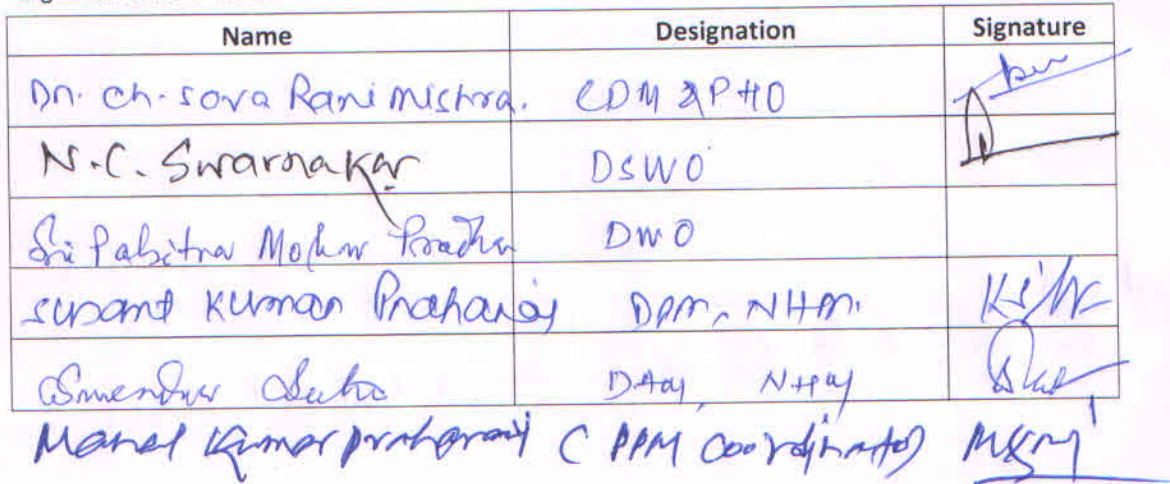 Name Designation Signature
Dr. Ch. Sova Rani Mishra. CDM & PHO
N.C. Swarnakar DSWO
Sri Pabitra Mohan Pradhan DWO
Susant Kumar Praharaj DPM, NHM.
DAM, NHM
Kumar Praharaj (PPM Coordinator) MKM